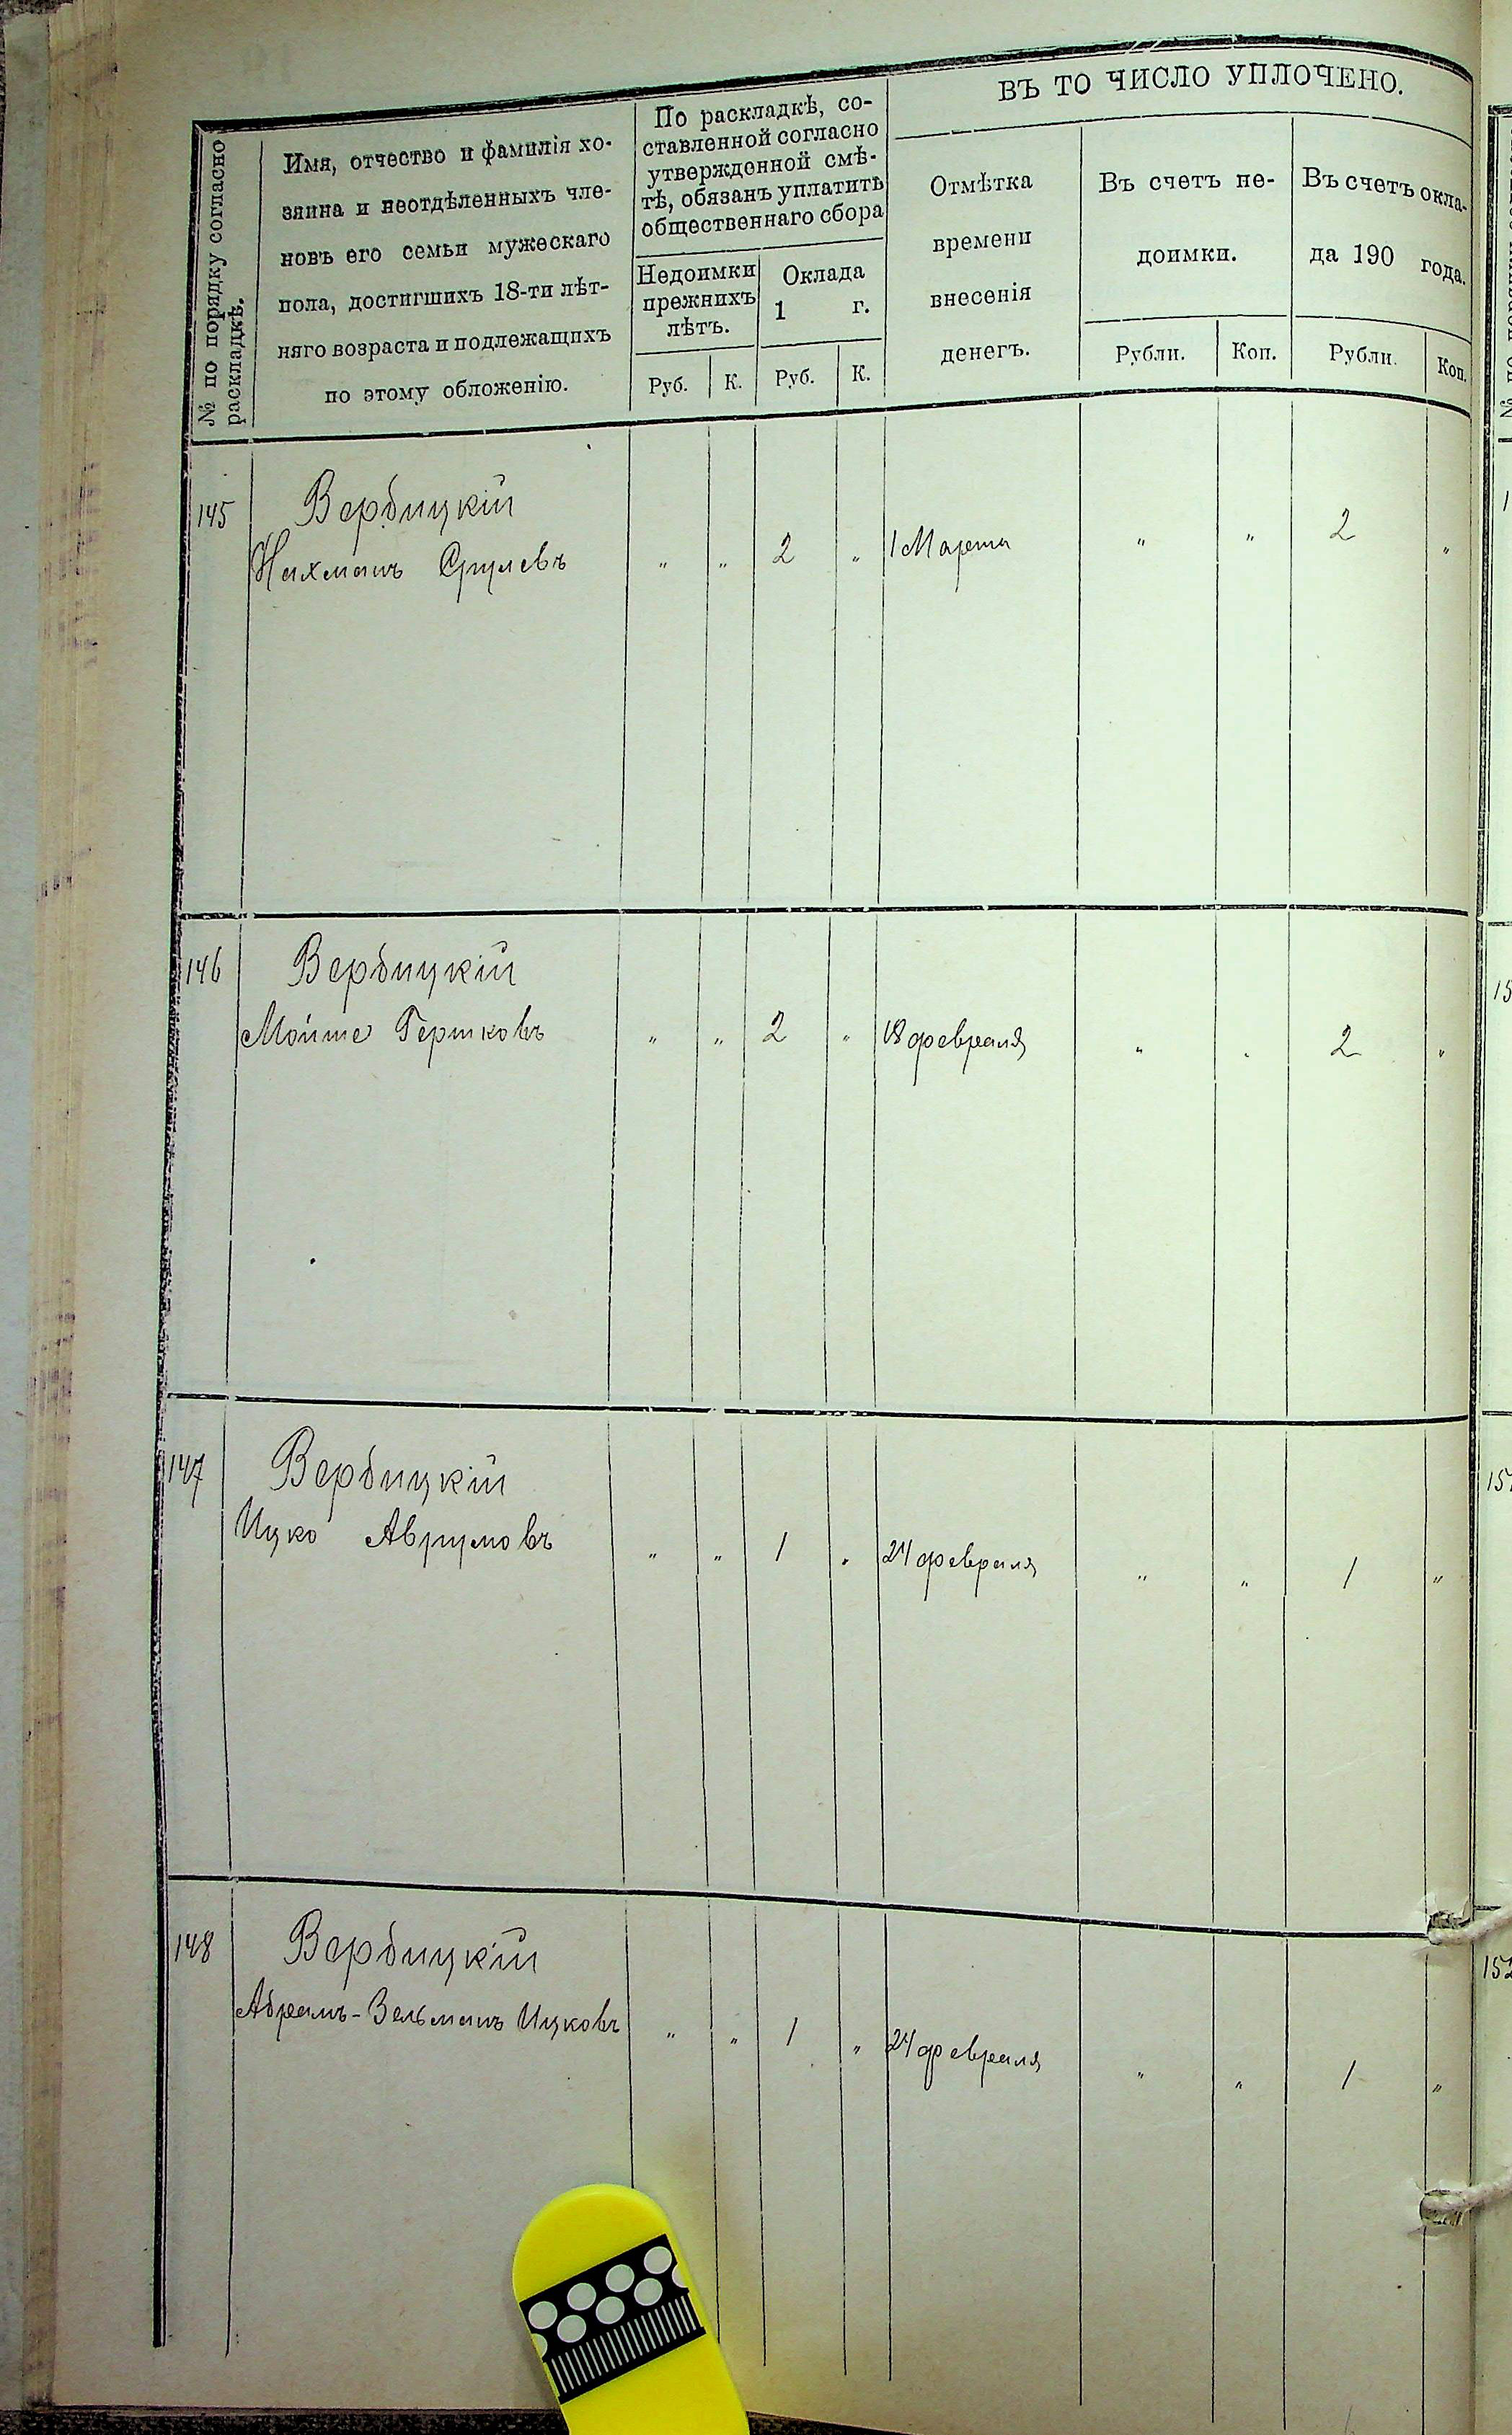 № по порядку согласно
раскладкѣ.
Имя, отчество и фамилія хо-
зяина и неотдѣленныхъ чле-
новъ его семьи мужескаго
пола, достигшихъ 18-ти лѣт-
няго возраста и подлежащихъ
по этому обложенію.
По раскладкѣ, со-
ставленной согласно
утвержденной смѣ-
тѣ, обязанъ уплатить
общественнаго сбора
Недоимки
прежнихъ
лѣтъ.
Оклада
1 г.
Руб. К. Руб. К.
ВЪ ТО ЧИСЛО УПЛОЧЕНО.
Отмѣтка
времени
внесенія
денегъ.
Въ счетъ не-
доимки.
Въ счетъ окла-
да 190 года.
Рубли. Коп. Рубли. Коп.
145 Вербицкій
Нахманъ Срулевъ " " 2 " 1 Марта " " 2 "
146 Вербицкій
Мойше Гершковъ " " 2 " 18 февраля " " 2 "
147 Вербицкій
Ицко Аврумовъ " " 1 " 24 февраля " " 1 "
148 Вербицкій
Абрамъ-Зельманъ Ицковъ " " 1 " 24 февраля " " 1 "
152